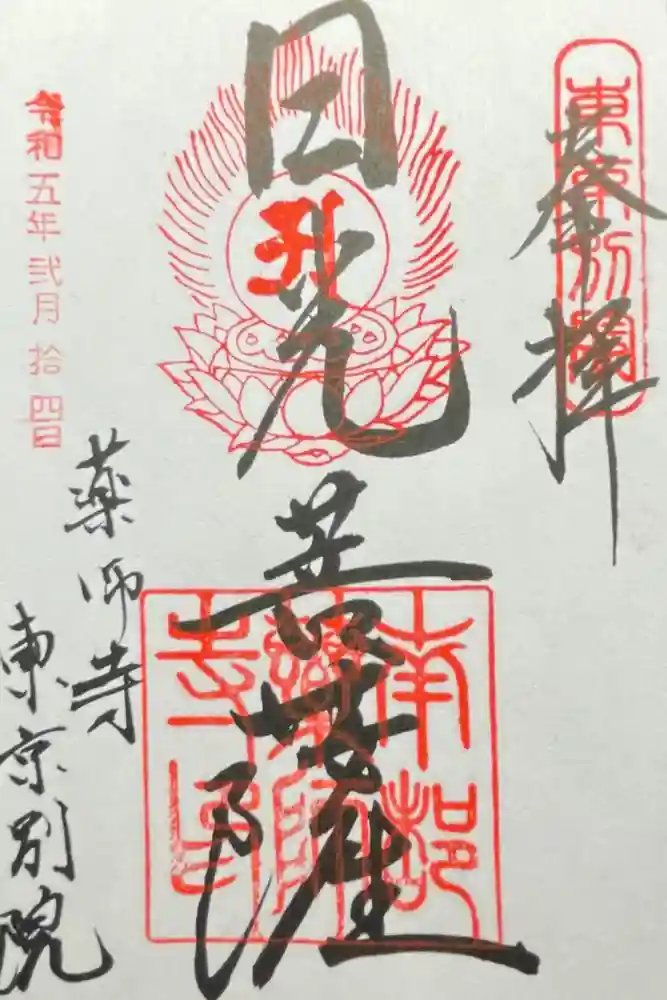 奉拝
東京別院
日光菩薩
南都薬師寺印
薬師寺
東京別院
令和五年弐月拾四日